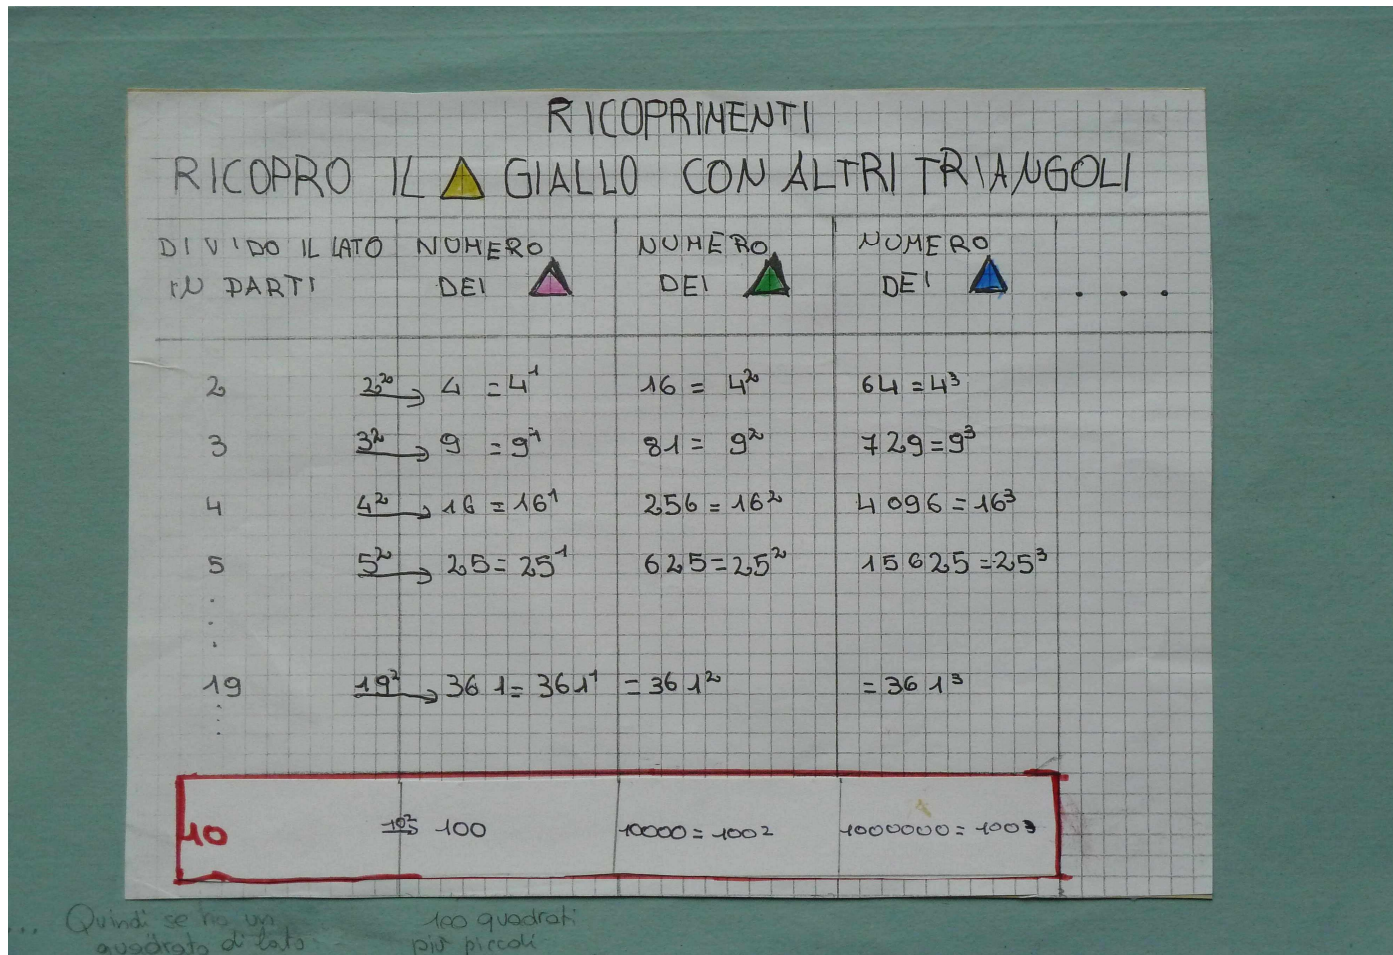 RICOPRIMENTI
RICOPRO IL GIALLO CON ALTRI TRIANGOLI
DIVIDO IL LATO IN PARTI
NUMERO DEI
NUMERO DEI
NUMERO DEI
. . .
2 2² → 4 = 4¹ 16 = 4² 64 = 4³
3 3² → 9 = 9¹ 81 = 9² 729 = 9³
4 4² → 16 = 16¹ 256 = 16² 4096 = 16³
5 5² → 25 = 25¹ 625 = 25² 15625 = 25³
19 19² → 361 = 361¹ = 361² = 361³
10 10² → 100 10000 = 100² 1000000 = 100³
... Quindi se ho un 100 quadrati
quadrato di lato più piccoli